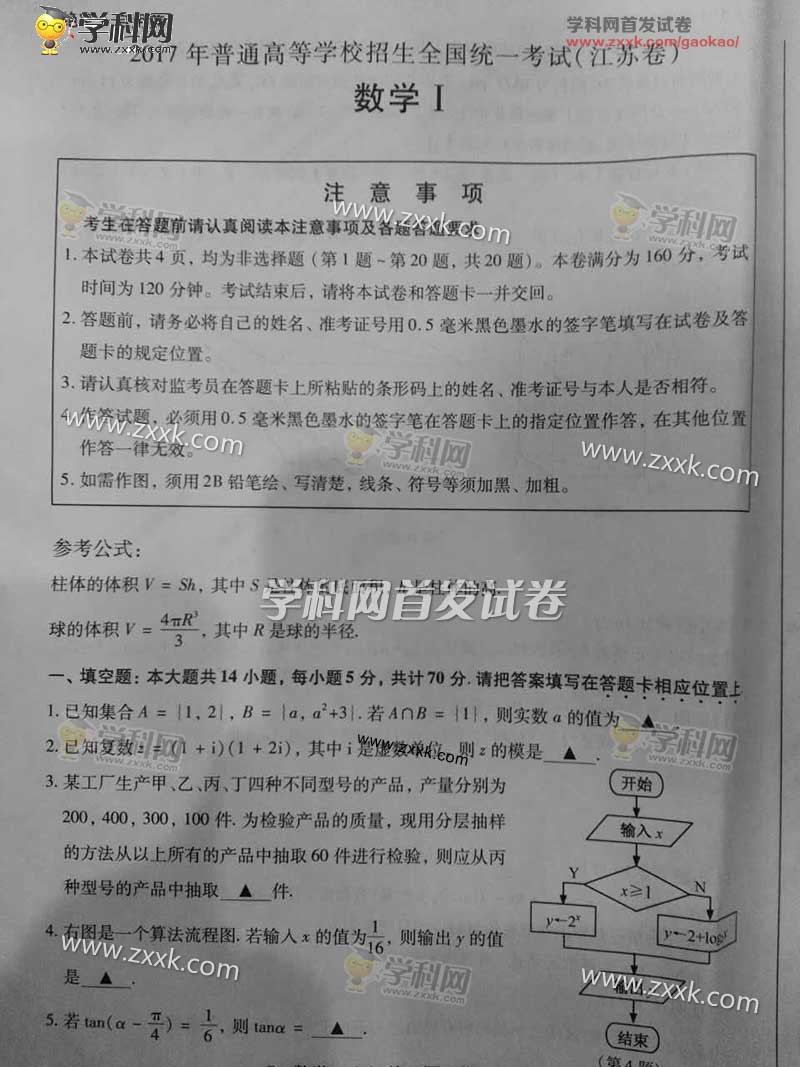 学科网 学科网首发试卷
www.zxxk.com/gaokao/
2017 年普通高等学校招生全国统一考试(江苏卷)
数学 I
注 意 事 项
考生在答题前请认真阅读本注意事项及各题答题要求
1. 本试卷共 4 页，均为非选择题（第 1 题 ~ 第 20 题，共 20 题）。本卷满分为 160 分，考试
时间为 120 分钟。考试结束后，请将本试卷和答题卡一并交回。
2. 答题前，请务必将自己的姓名、准考证号用 0.5 毫米黑色墨水的签字笔填写在试卷及答
题卡的规定位置。
3. 请认真核对监考员在答题卡上所粘贴的条形码上的姓名、准考证号与本人是否相符。
4. 作答试题，必须用 0.5 毫米黑色墨水的签字笔在答题卡上的指定位置作答，在其他位置
作答一律无效。
5. 如需作图，须用 2B 铅笔绘、写清楚，线条、符号等须加黑、加粗。
参考公式：
柱体的体积 V = Sh, 其中 S
学科网首发试卷
球的体积 V = 4πR³/3, 其中 R 是球的半径.
一、填空题：本大题共 14 小题，每小题 5 分，共计 70 分. 请把答案填写在答题卡相应位置上
1. 已知集合 A = {1, 2}, B = {a, a²+3}. 若 A∩B = {1}, 则实数 a 的值为 ▲
2. 已知复数 z = (1 + i)(1 + 2i), 其中 i 是虚数单位, 则 z 的模是 ▲ .
3. 某工厂生产甲、乙、丙、丁四种不同型号的产品，产量分别为
200, 400, 300, 100 件. 为检验产品的质量，现用分层抽样
的方法从以上所有的产品中抽取 60 件进行检验，则应从丙
种型号的产品中抽取 ▲ 件.
4. 右图是一个算法流程图. 若输入 x 的值为 1/16, 则输出 y 的值
是 ▲ .
5. 若 tan(α - π/4) = 1/6, 则 tanα = ▲ .
开始
输入 x
Y x≥1 N
y←2ˣ
y←2+log
结束
(第4题)
www.zxxk.com